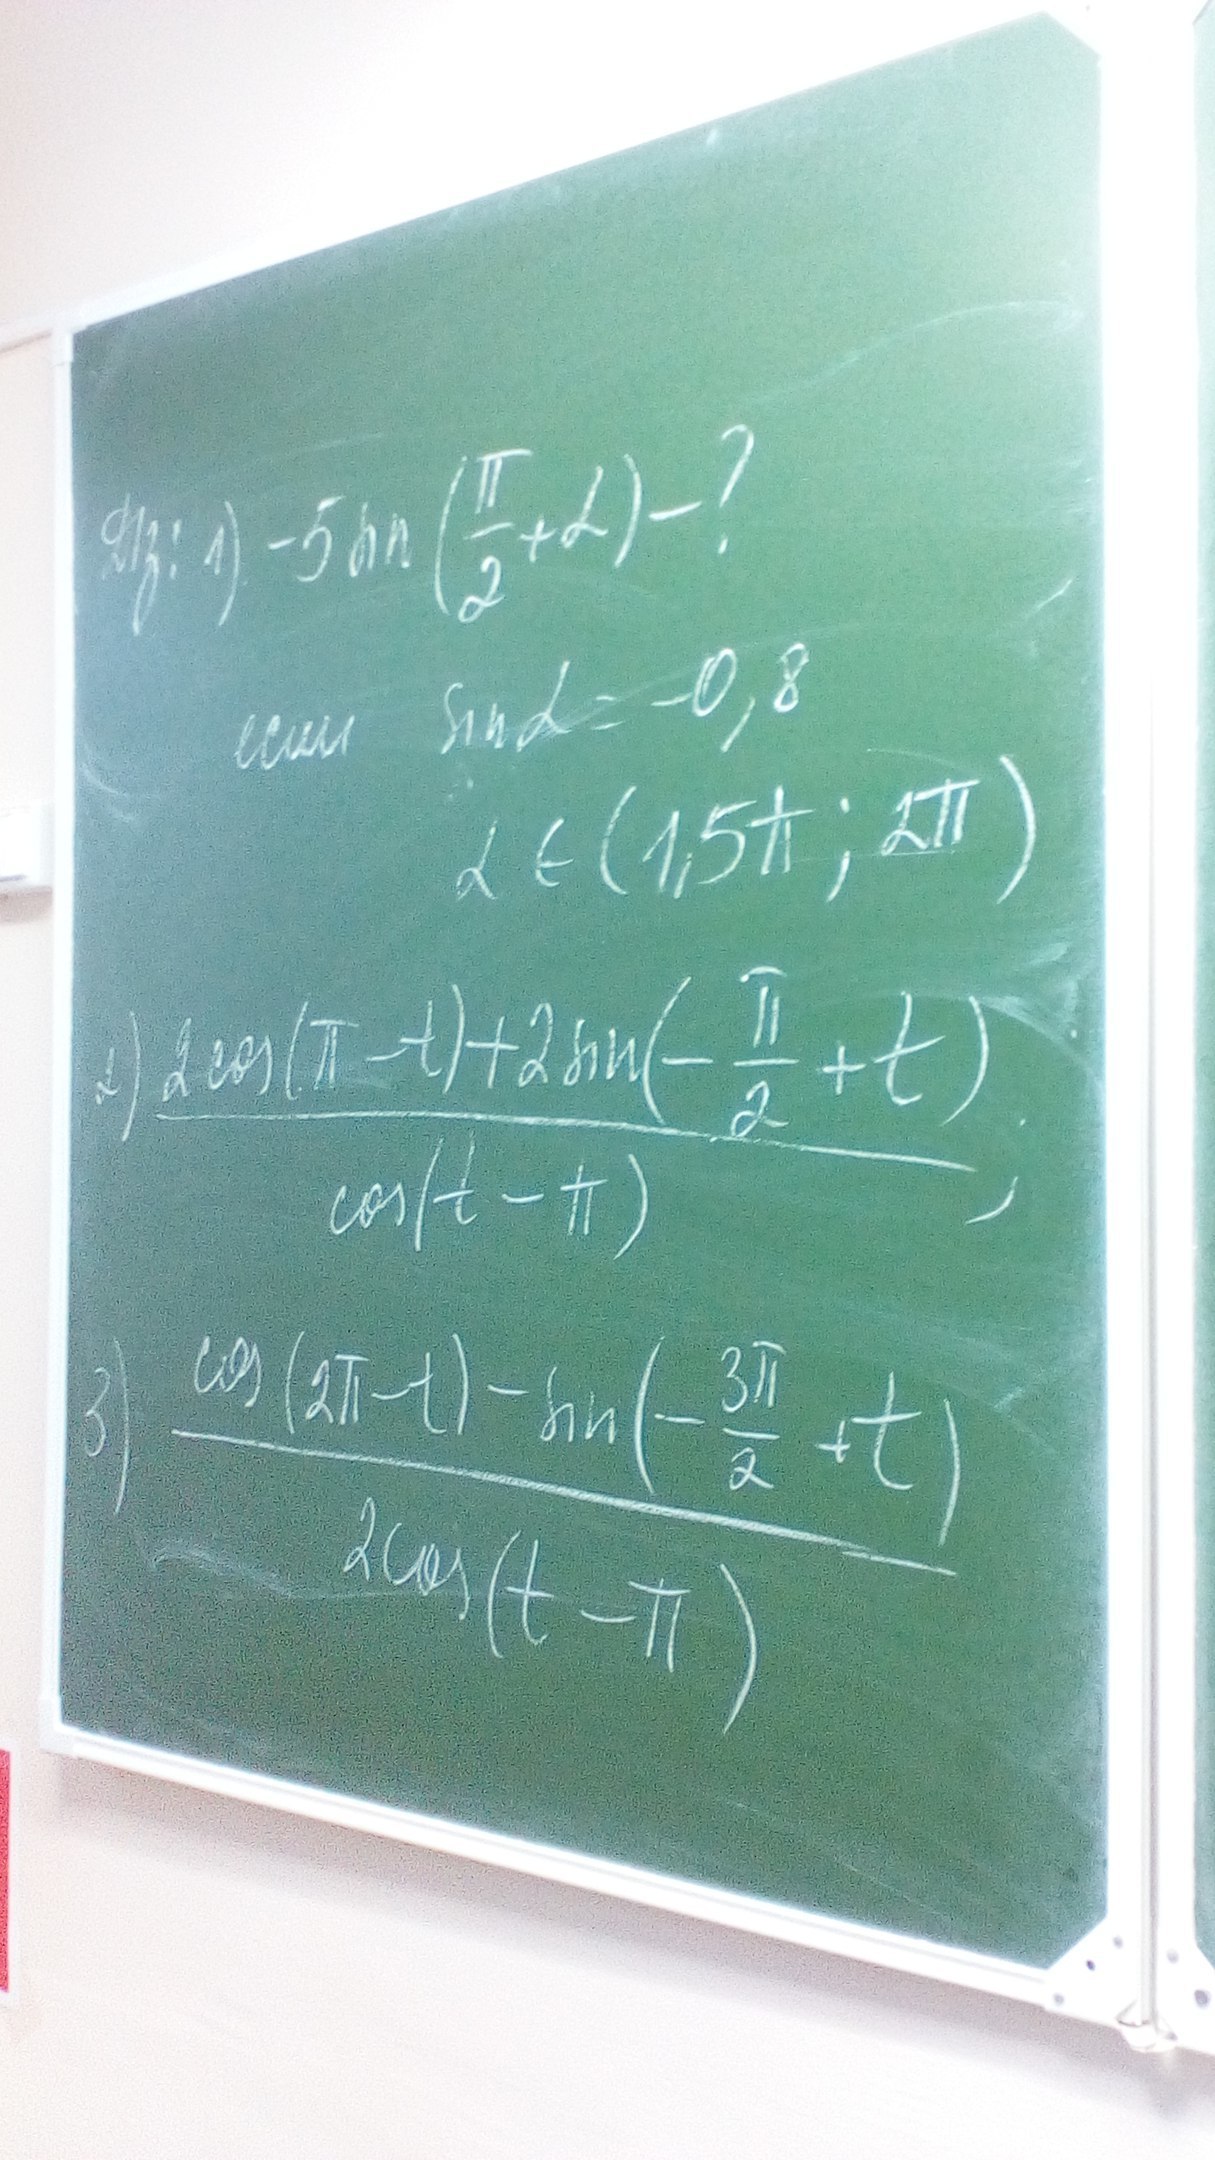 Д/з: 1) -5 sin (π/2 + α) - ?
если sin α = -0,8
α ∈ (1,5π ; 2π)
2) (2 cos(π - t) + 2 sin(- π/2 + t)) / cos(t - π) ;
3) (cos(2π - t) - sin(- 3π/2 + t)) / 2 cos(t - π)